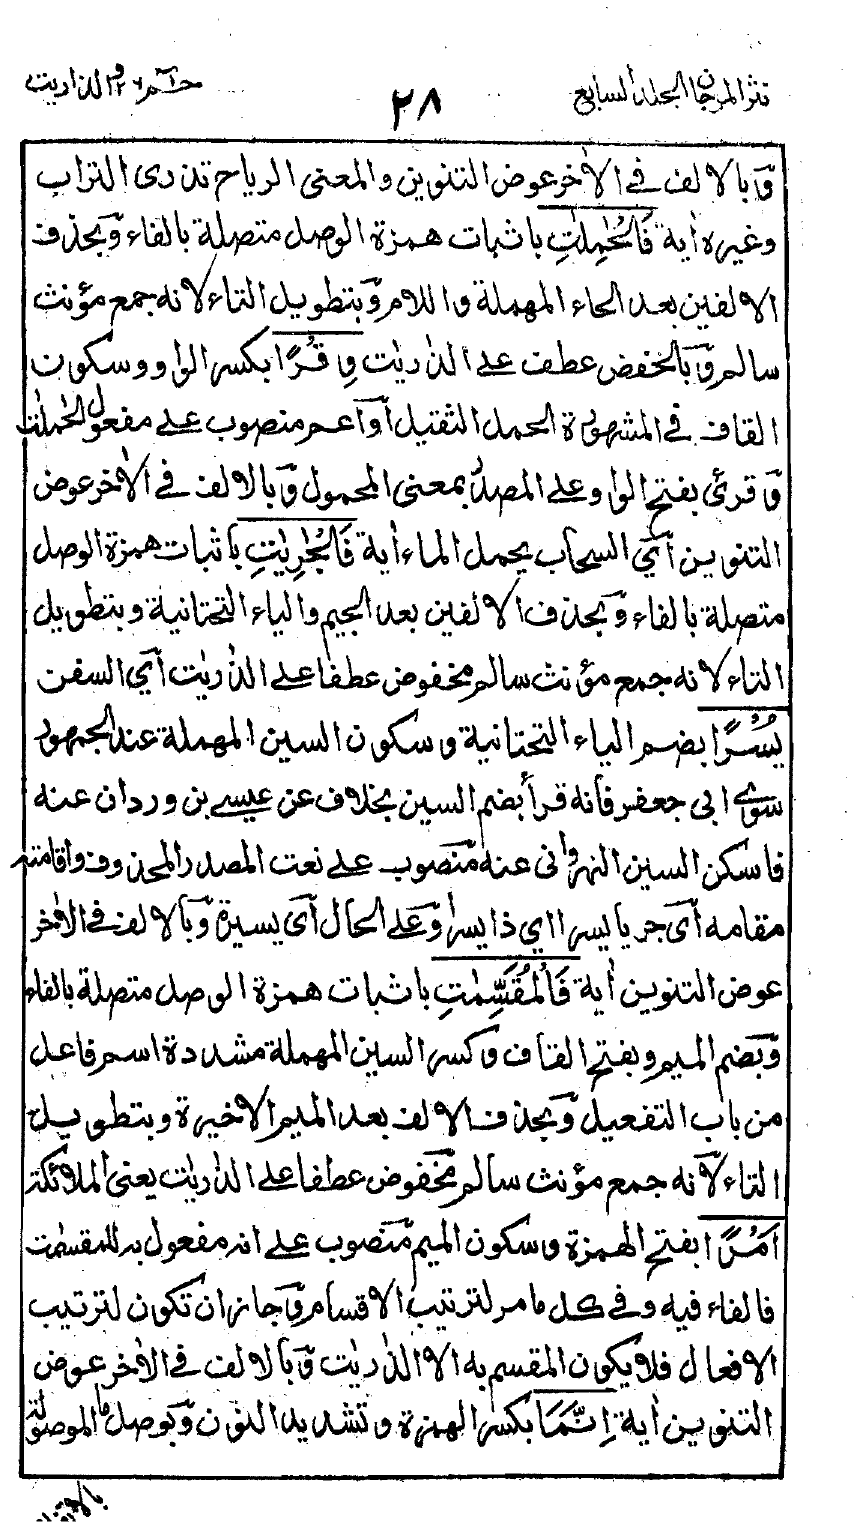 نثر المرجان الجلد السابع
٢٨
حٰم ٢٦ والذاريت
وَبالالف في الأخر عوض التنوين والمعنى الرياح تذرى التراب
وغيره أية فَالْحٰمِلٰتِ باثبات همزة الوصل متصلة بالفاء وَبحذف
الالفين بعد الحاء المهملة واللام وَبتطويل التاء لانه جمع مؤنث
سالم وَبالخفض عطف على الذّٰريٰت وِقْرًا بكسر الواو وسكون
القاف في المشهورة الحمل الثقيل أوأعم منصوب على مفعول الحٰملٰت
وَقرئ بفتح الواو على المصدر بمعنى المحمول وَبالالف في الأخر عوض
التنوين أي السحاب يحمل الماء أية فَالْجٰرِيٰتِ باثبات همزة الوصل
متصلة بالفاء وَبحذف الالفين بعد الجيم والياء التحتانية وبتطويل
التاء لانه جمع مؤنث سالم مخفوض عطفا على الذّٰريٰت أي السفن
يُسْرًا بضم الياء التحتانية وسكون السين المهملة عند الجمهور
سوى ابى جعفر فانه قرأ بضم السين بخلاف عن عيسى بن وردان عنه
فاسكن السين النهروانى عنه منصوب على نعت المصدر المحذوف واقامته
مقامه أى جريا يسرا اي ذا يسر أو على الحال أى يسيرة وَبالالف في الأخر
عوض التنوين أية فَالْمُقَسِّمٰتِ باثبات همزة الوصل متصلة بالفاء
وَبضم الميم وبفتح القاف وكسر السين المهملة مشددة اسم فاعل
من باب التفعيل وَبحذف الالف بعد الميم الاخيرة وبتطويل
التاء لانه جمع مؤنث سالم مخفوض عطفا على الذّٰريٰت يعنى الملائكة
أَمْرًا بفتح الهمزة وسكون الميم منصوب على انه مفعول به للمقسمٰت
فالفاء فيه وفي كل ما مر لترتيب الاقسام وَجاز ان تكون لترتيب
الافعال فلا يكون المقسم به الا الذّٰريٰت وَبالالف في الأخر عوض
التنوين أية إِنَّمَا بكسر الهمزة وتشديد النون وَبوصل ما الموصولة